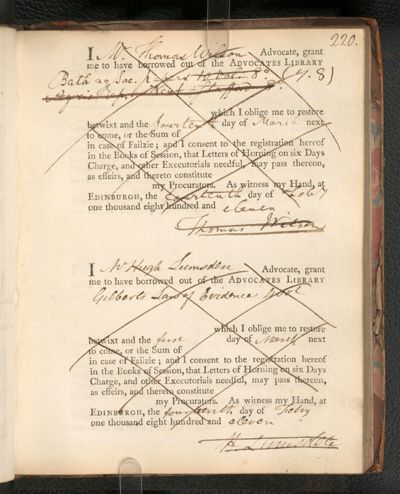 220.
I Mr Thomas Wilson Advocate, grant
me to have borrowed out of the ADVOCATES LIBRARY
Bath ag. Soc. Papers 10 Vol. 8º (4.8)
Agric. Rep.
which I oblige me to restore
betwixt and the fourteenth day of March next
to come, or the Sum of
in case of Failzie; and I consent to the registration hereof
in the Books of Session, that Letters of Horning on six Days
Charge, and other Executorials needful, may pass thereon,
as effeirs, and thereto constitute
my Procurators. As witness my Hand, at
EDINBURGH, the fourteenth day of Feby
one thousand eight hundred and eleven
Thomas Wilson
I Mr Hugh Lumsden Advocate, grant
me to have borrowed out of the ADVOCATES LIBRARY
Gilberts Law of Evidence
which I oblige me to restore
betwixt and the first day of March next
to come, or the Sum of
in case of Failzie; and I consent to the registration hereof
in the Books of Session, that Letters of Horning on six Days
Charge, and other Executorials needful, may pass thereon,
as effeirs, and thereto constitute
my Procurators. As witness my Hand, at
EDINBURGH, the fourteenth day of Feby
one thousand eight hundred and eleven
H. Lumsden